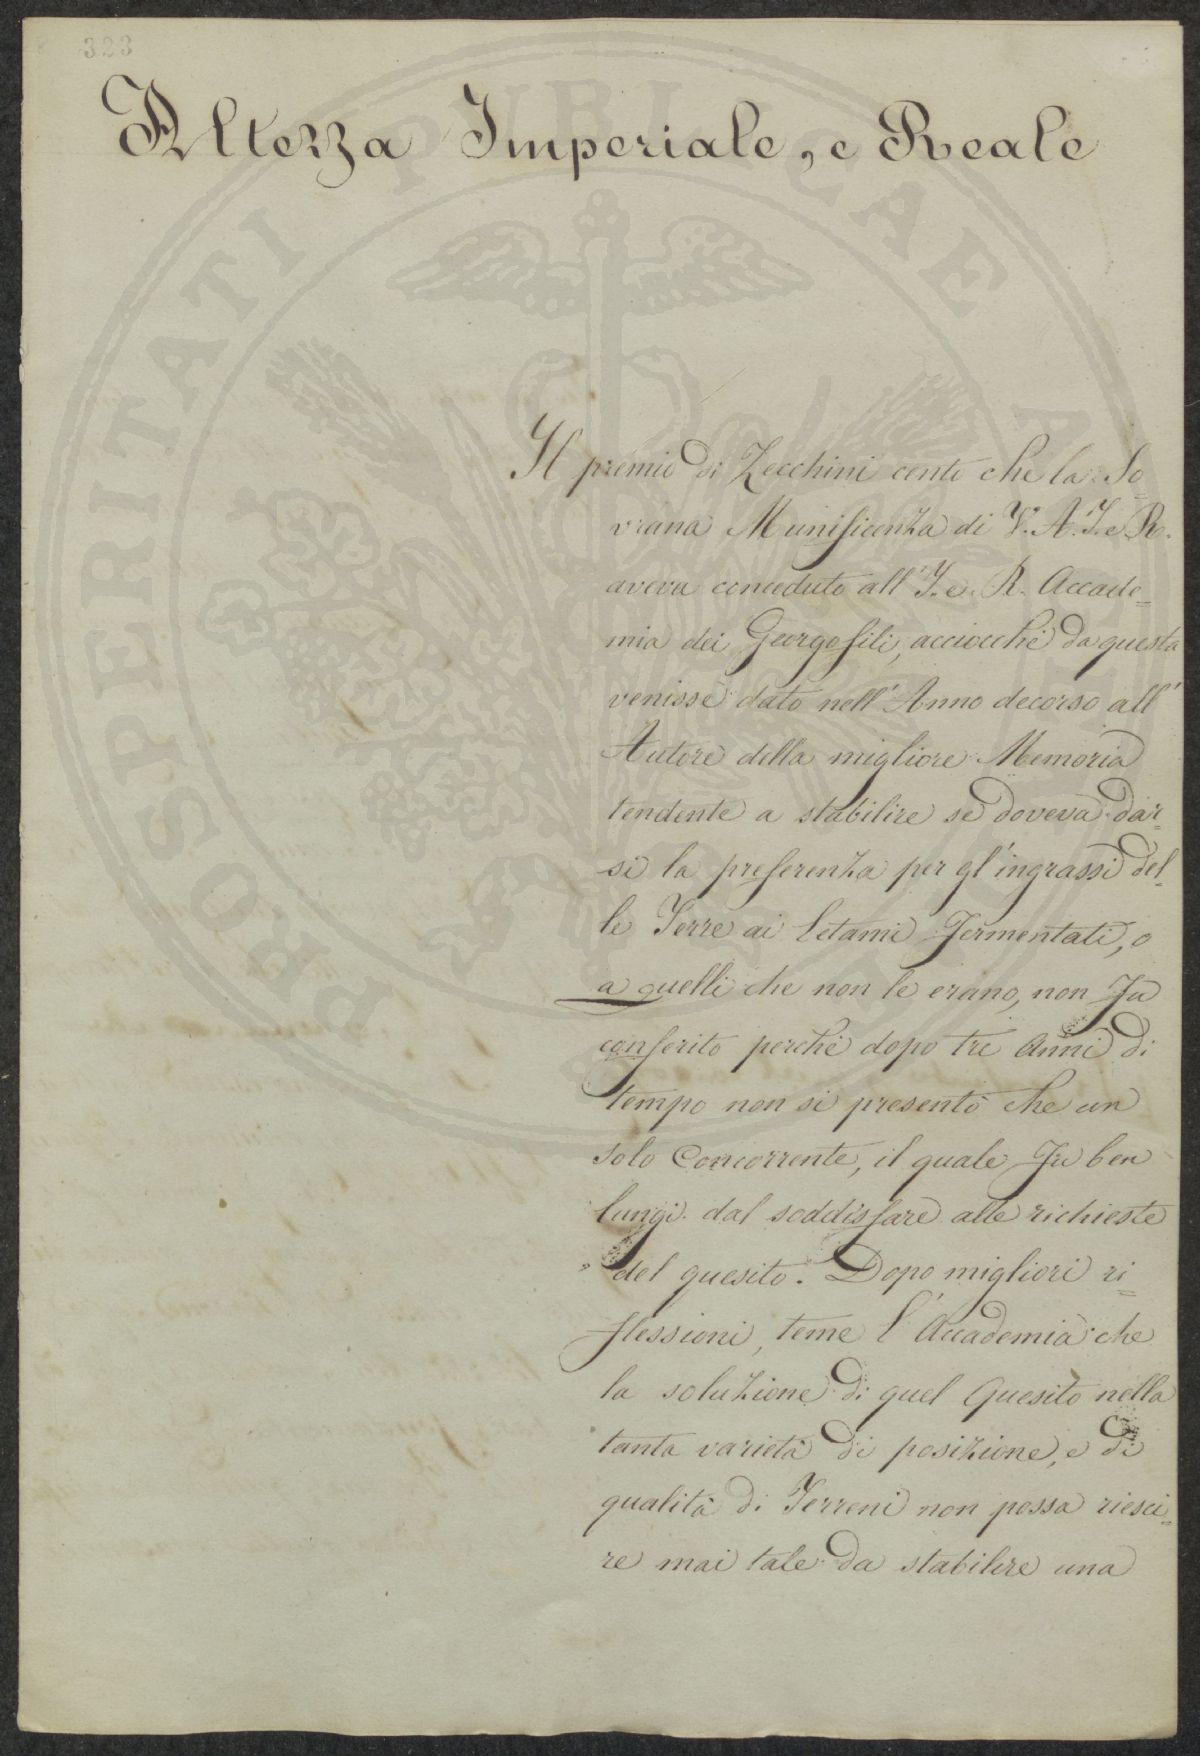 323
Altezza Imperiale, e Reale
Il premio di Zecchini cento che la So=
vrana Munificenza di V. A. I. e R.
aveva conceduto all' I. e. R. Accade=
mia dei Georgofili, acciocchè da questa
venisse dato nell' Anno decorso all'
Autore della migliore Memoria
tendente a stabilire se doveva dar=
si la preferenza per gl' ingrassi del=
le Terre ai letami fermentati, o
a quelli che non le erano, non fu
conferito perchè dopo tre Anni di
tempo non si presentò che un
solo Concorrente, il quale fu ben
lungi dal soddisfare alle richieste
del quesito. Dopo migliori ri=
flessioni, teme l' Accademia che
la soluzione di quel Quesito nella
tanta varietà di posizione, e di
qualità di Terreni non possa riesci=
re mai tale da stabilire una
PROSPERITATI PUBLICAE